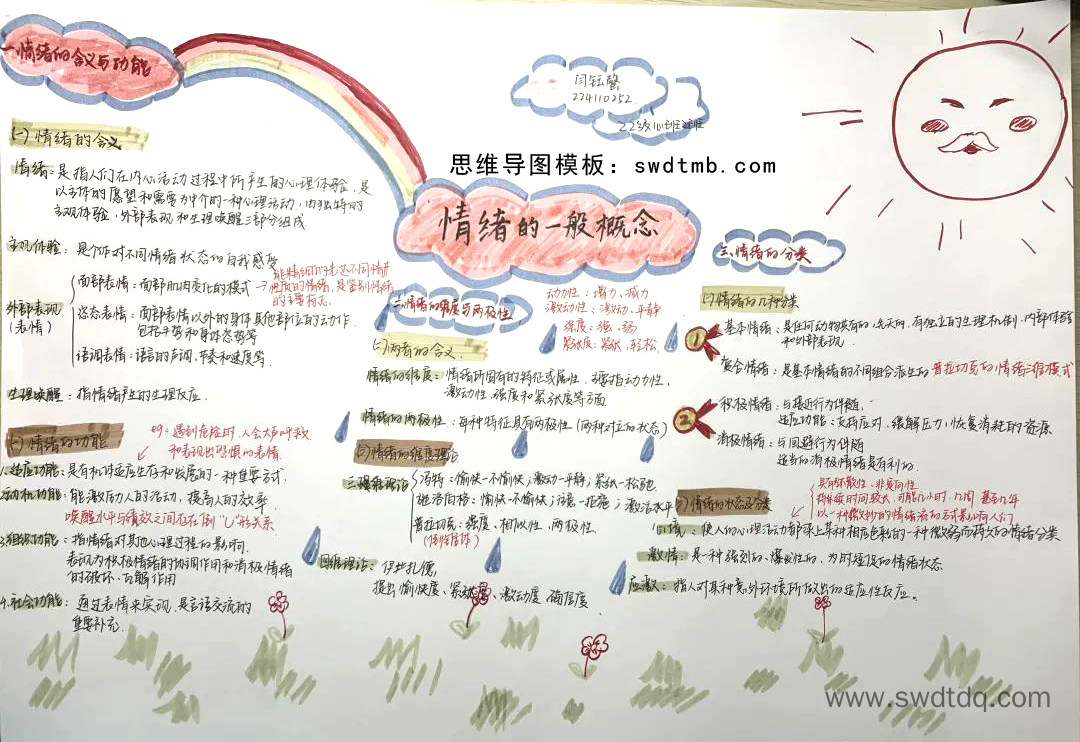 一.情绪的含义与功能
闫钰馨
224110252
22级心班班
思维导图模板：swdtmb.com
情绪的一般概念
(一)情绪的含义
情绪：是指人们在内心活动过程中所产生的心理体验，是
以主体的愿望和需要为中介的一种心理活动，由独特的
主观体验、外部表现和生理唤醒三部分组成
主观体验：是个体对不同情绪状态的自我感受
外部表现
(表情)
面部表情：面部肌肉变化的模式
→能精细的表达不同情
性质的情绪，是鉴别情绪
的主要标志。
姿态表情：面部表情以外的身体其他部位的动作。
包括手势和身体姿势等
语调表情：语言的声调、节奏和速度等
生理唤醒：指情绪产生的生理反应。
(二)情绪的功能
如：遇到危险时，人会大声呼救
和表现出恐惧的表情。
1.适应功能：是有机体适应生存和发展的一种重要方式。
2.动机功能：能激励人的活动，提高人的效率
唤醒水平与绩效之间存在倒“U”的关系
3.组织功能：指情绪对其他心理过程的影响.
表现为积极情绪的协调作用和消极情绪
的破坏、瓦解作用
4.社会功能：通过表情来实现，是言语交流的
重要补充.
二.情绪的维度与两极性
动力性：增力、减力
激动性：激动、平静
强度：强、弱
紧张度：紧张、轻松
(一)两者的含义
情绪的维度：情绪所固有的特征或属性。主要指动力性，
激动性，强度和紧张度等方面
情绪的两极性：每种特征具有两极性(两种对立的状态)
(二)情绪的维度理论
三维理论
冯特：愉快-不愉快；激动-平静；紧张-松弛
施洛伯格：愉快-不愉快；注意-拒绝；激活水平
普拉切克：强度、相似性、两极性
(倒锥体)
四维理论：伊扎德，
提出愉快度、紧张度、激动度、确信度
三.情绪的分类
(一)情绪的几种分类
1
基本情绪：是任何动物共有的、先天的，有独立的生理机制、内部体验
和外部表现
复合情绪：是基本情绪的不同组合派生的 普拉切克的情绪三维模式
2
积极情绪：与接近行为伴随，
适应功能：支持应对、缓解压力，恢复消耗的资源
消极情绪：与回避行为伴随
适当的消极情绪是有利的.
(二)情绪的状态及分类
具有弥散性、非定向性
持续时间较长，可能几小时、几周、甚至几年
以一种微妙的情绪流的方式影响人们
心境：使人们的心理活动都染上某种相应色彩的一种微弱而持久的情绪分类
激情：是一种强烈的、爆发性的、为时短暂的情绪状态
应激：指人对某种意外环境所做出的适应性反应。
www.swdtdq.com